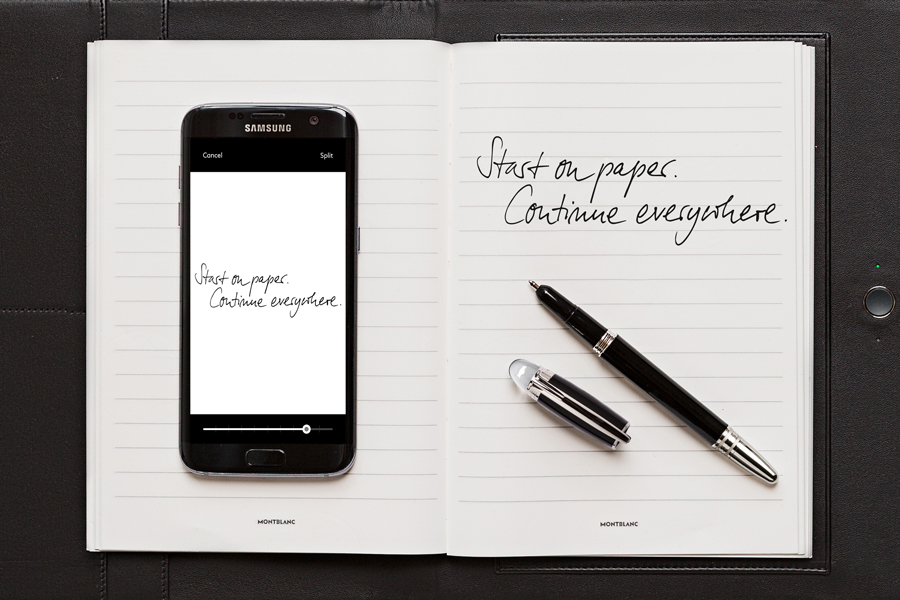 SAMSUNG
Cancel Split
Start on paper.
Continue everywhere.
MONTBLANC
Start on paper.
Continue everywhere.
MONTBLANC